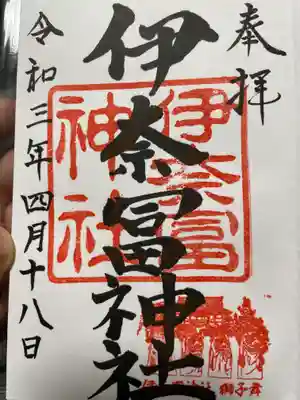 奉拝
伊奈冨神社
伊奈冨
神社
令和三年四月十八日
獅子舞